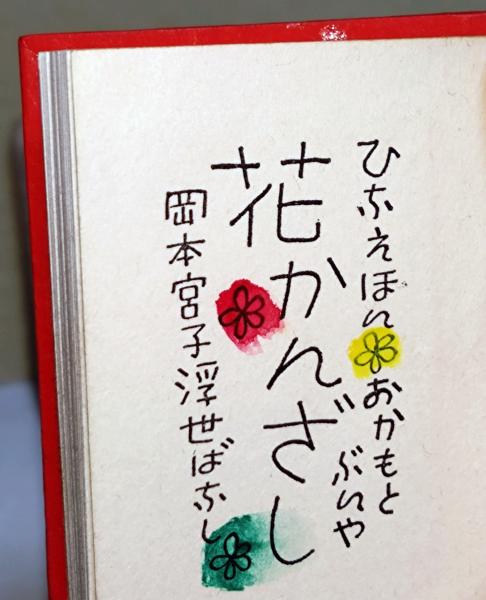 ひなえほん おかもと
ぶんや
花かんざし
岡本宮子浮世ばなし